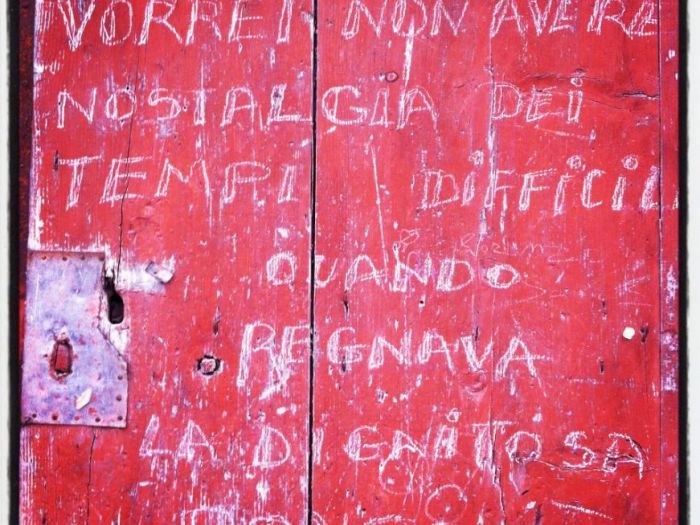 VORREI NON AVERE
NOSTALGIA DEI
TEMPI DIFFICIL
QUANDO
REGNAVA
LA DIGNITOSA